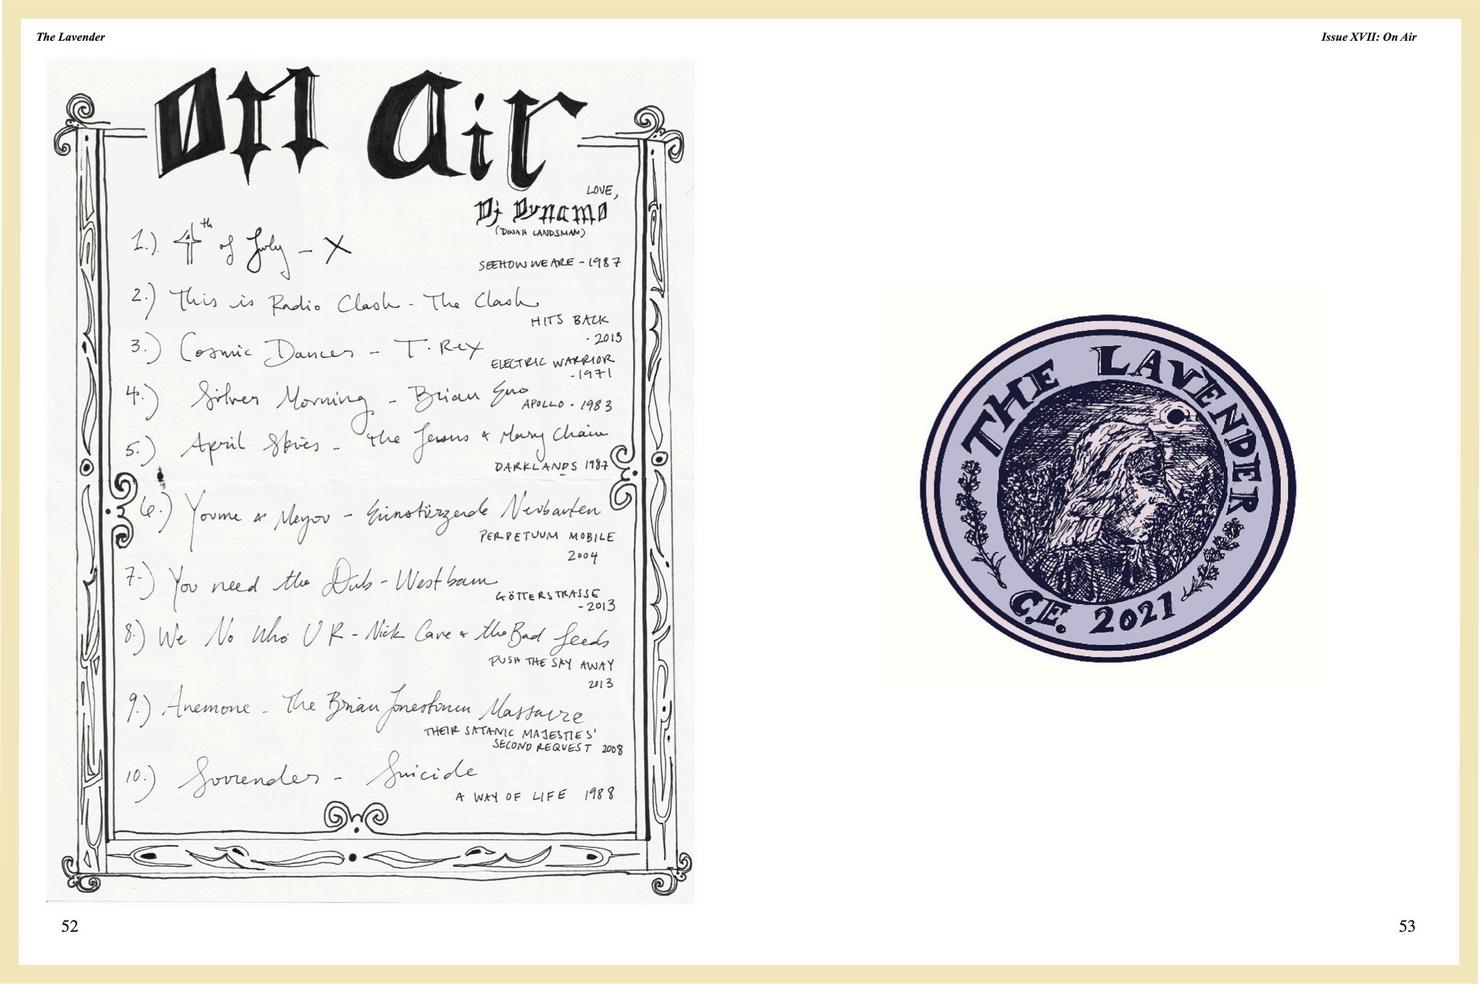 The Lavender
Issue XVII: On Air
on air
LOVE,
Dj Dynamo
(DINAH LANDSMAN)
1.) 4th of July - X
SEE HOW WE ARE - 1987
2.) This is Radio Clash - The Clash
HITS BACK
- 2013
3.) Cosmic Dancer - T. Rex
ELECTRIC WARRIOR
- 1971
4.) Silver Morning - Brian Eno
APOLLO - 1983
5.) April Skies - The Jesus & Mary Chain
DARKLANDS 1987
6.) Youme & Meyou - Einstürzende Neubauten
PERPETUUM MOBILE
2004
7.) You need the Dub - Westbam
GÖTTERSTRASSE
- 2013
8.) We No Who U R - Nick Cave & the Bad Seeds
PUSH THE SKY AWAY
2013
9.) Anemone - The Brian Jonestown Massacre
THEIR SATANIC MAJESTIES'
SECOND REQUEST 2008
10.) Surrender - Suicide
A WAY OF LIFE 1988
THE LAVENDER
C.E. 2021
52
53